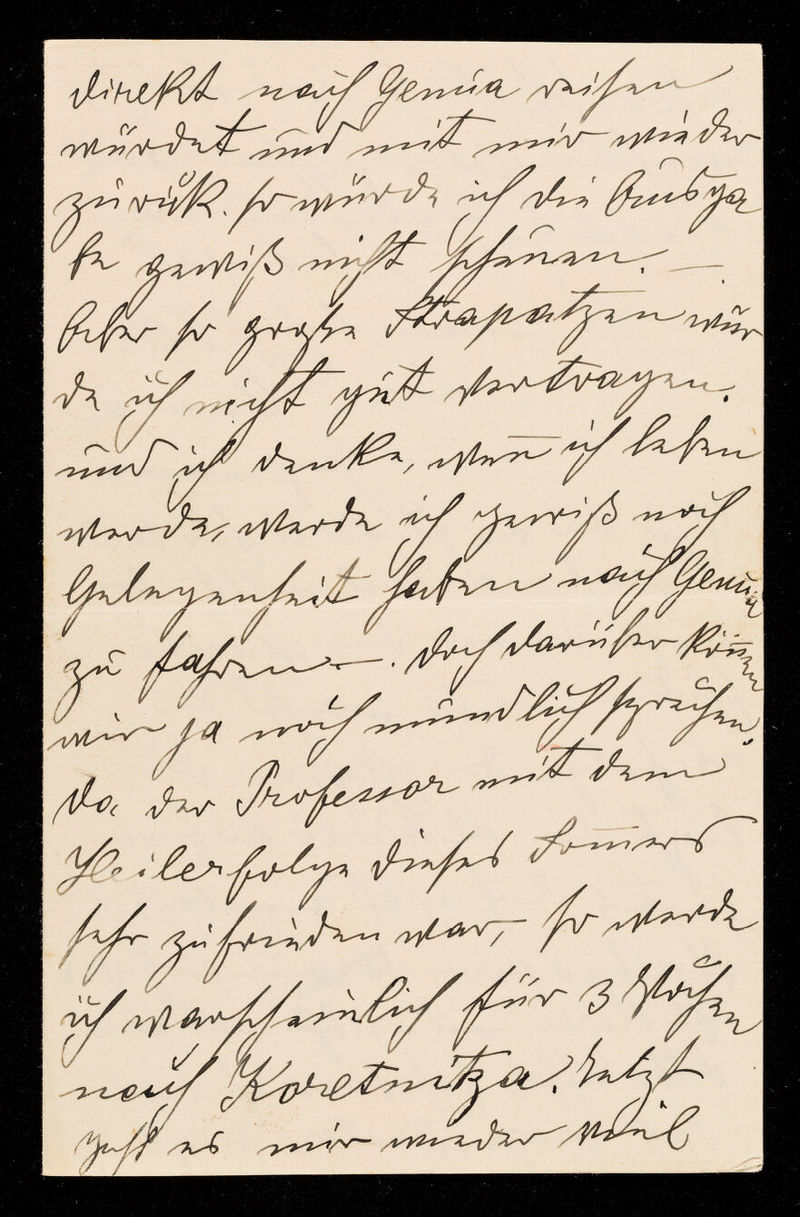 direkt nach Genua reisen
würdet und mit mir wieder
zurük. so würde ich die Ausga
be gewiß nicht scheuen. —
Aber so große Strapatzen wür
de ich nicht gut vertragen.
und ich denke, wen̅ ich leben
werde, werde ich gewiß noch
Gelegenheit haben nach Genua
zu fahren —. Doch darüber kön̅en
wir ja noch mündlich sprechen.
Da der Professor mit dem
Heilerfolge dieses Som̅ers
sehr zufrieden war, so werde
ich warscheinlich für 3 Wochen
nach Koretnitza. Jetzt
geht es mir wieder viel